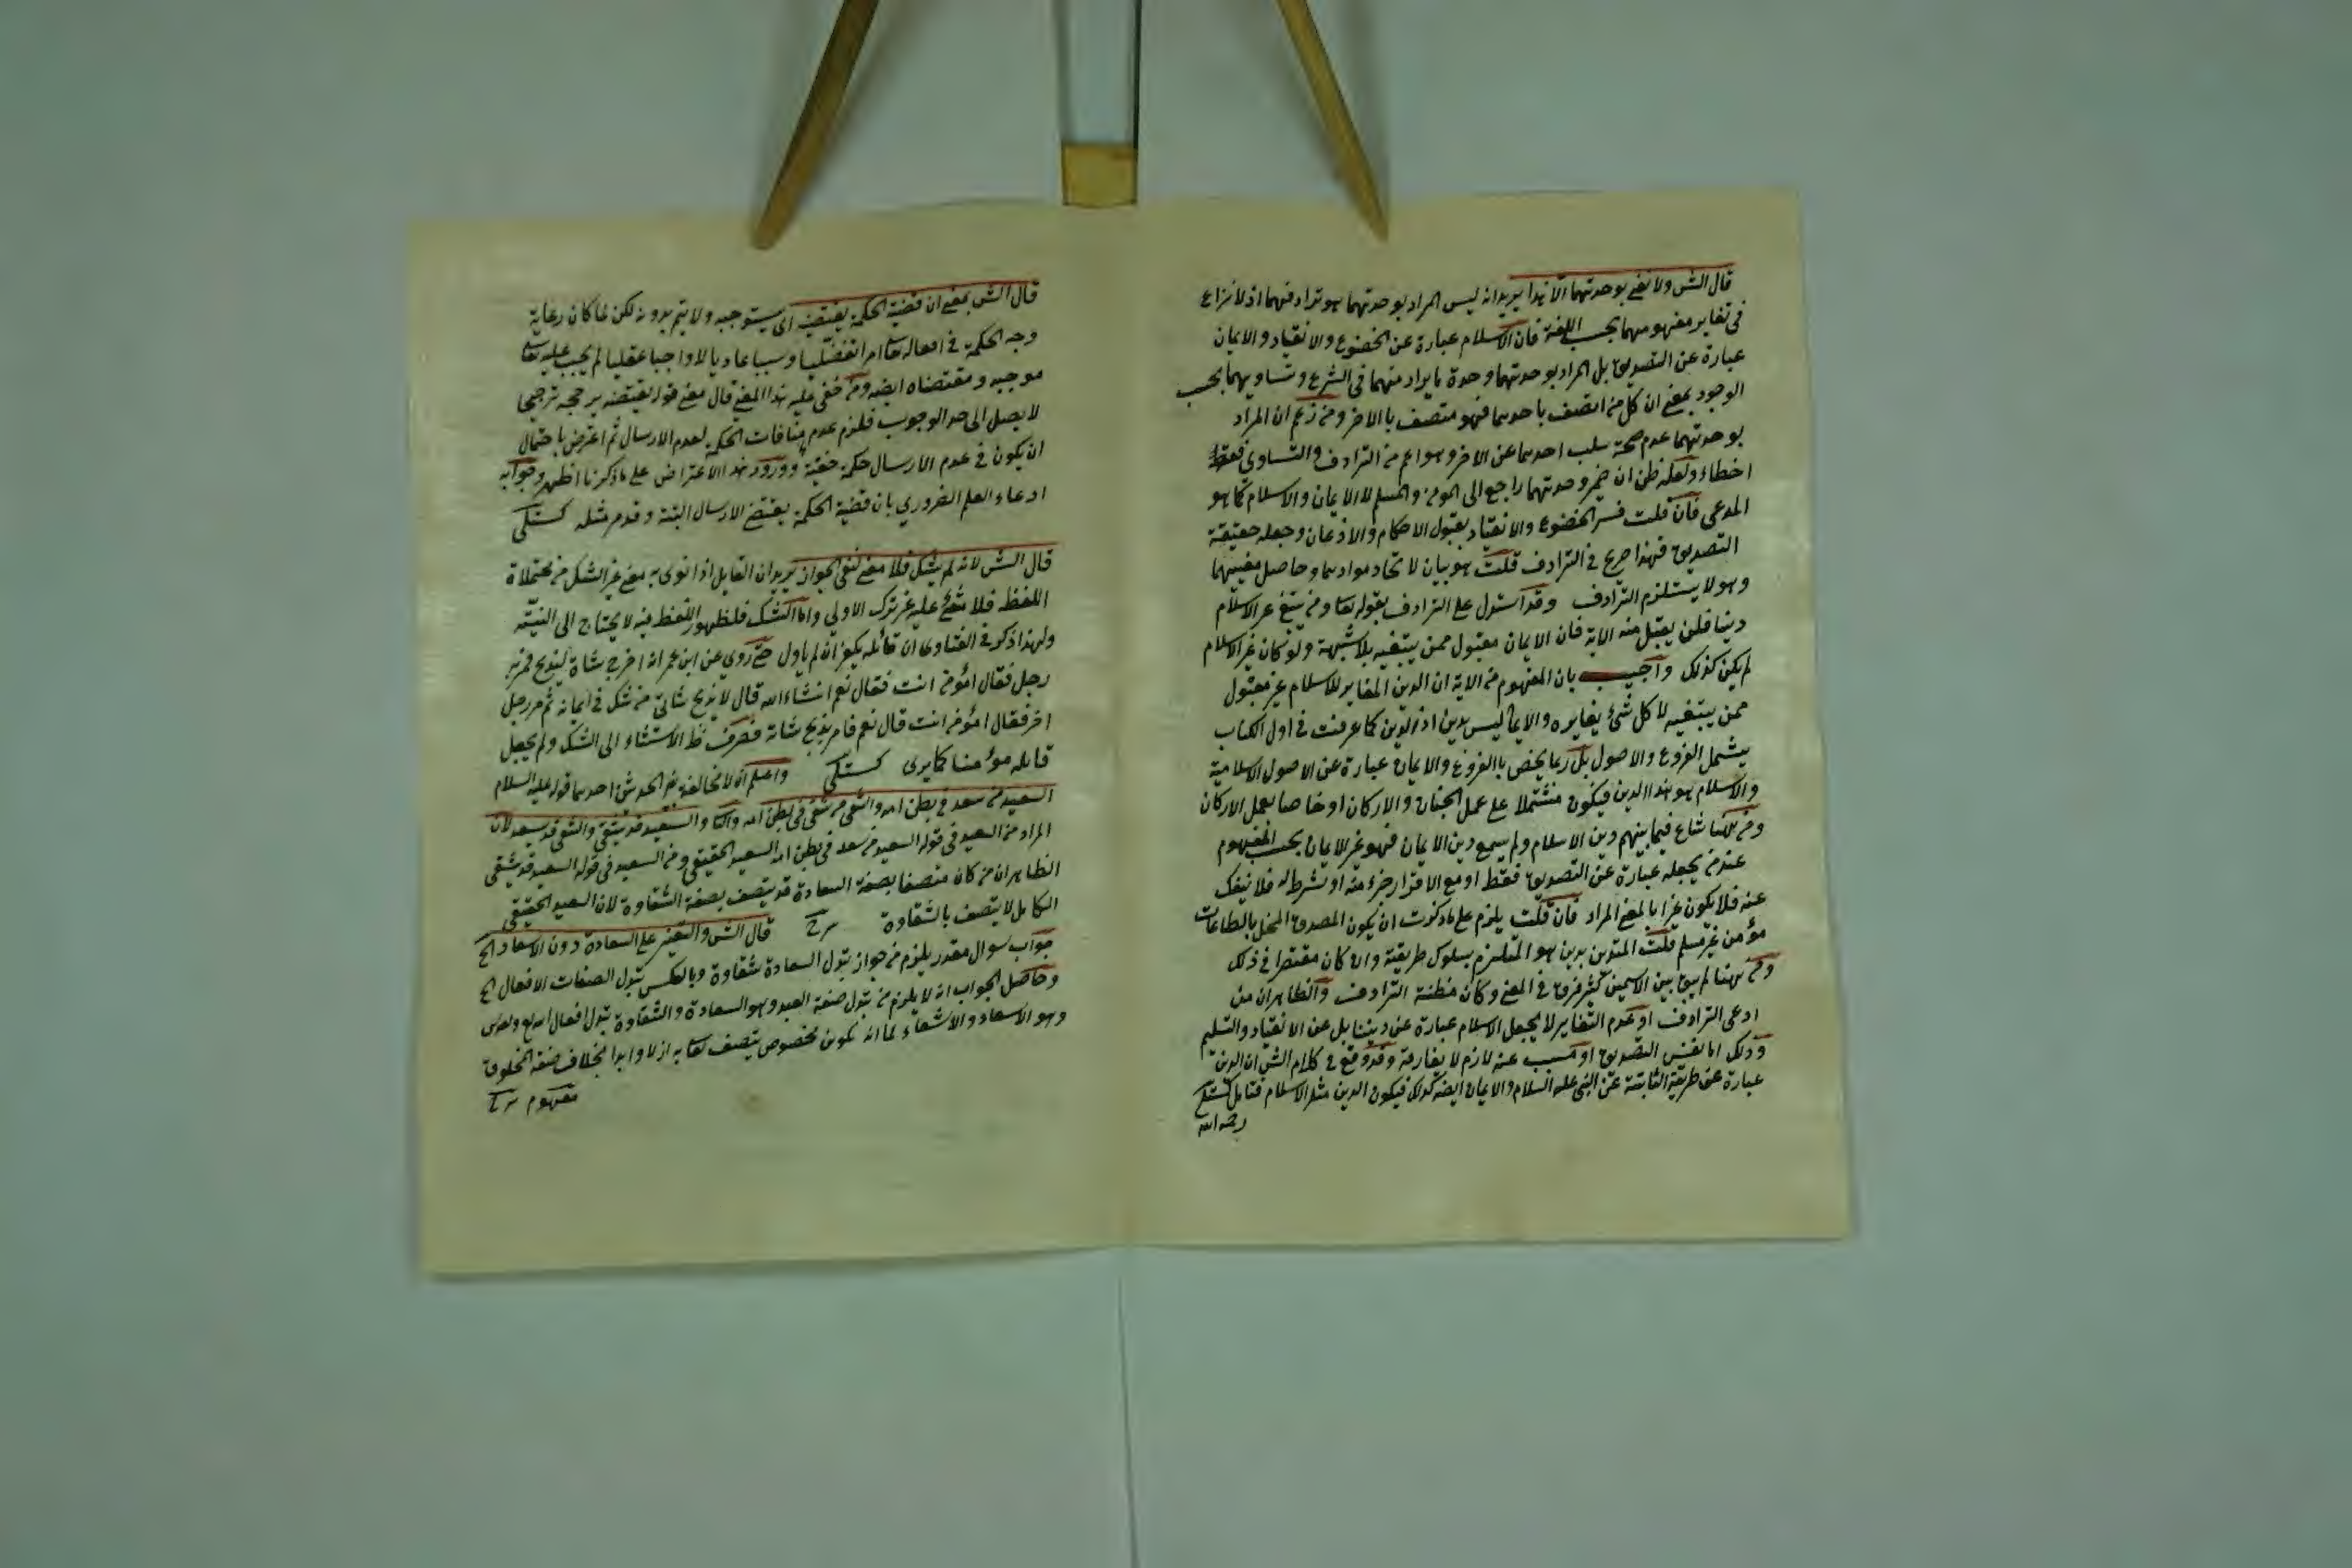 قال الش ولا نعني بوحدتهما الا هذا يريد انه ليس المراد بوحدتهما هو ترادفهما اذ لا نزاع
في تغاير مفهومهما بحسب اللغة فان الاسلام عبارة عن الخضوع والانقياد والايمان
عبارة عن التصديق بل المراد بوحدتهما وحدة ما يراد منهما في الشرع وتساويهما بحسب
الوجود بمعنى ان كل من اتصف باحدهما فهو متصف باالاخر ومن زعم ان المراد
بوحدتهما عدم صحة سلب احدهما عن الاخر وهو اعم من الترادف والتساوي فقد
اخطاء ولعله ظن ان ضمير وحدتهما راجع الى المؤمن والمسلم لا الايمان والاسلام كما هو
المدعى فان قلت فسر الخضوع والانقياد بقبول الاحكام والاذعان وجعله حقيقة
التصديق فهذا صريح في الترادف قلت هو بيان لاتحاد موادهما وحاصل معنييهما
وهو لا يستلزم الترادف وقد استدل على الترادف بقوله تعا ومن يبتغ غير الاسلام
دينا فلن يقبل منه الاية فان الايمان مقبول ممن يبتغيه بلا شبهة ولو كان غير الاسلام
لم يكن كذلك واجيب بان المفهوم من الاية ان الدين المغاير للاسلام غير مقبول
ممن يبتغيه لا كل شئ يغايره والايما ليس بدين اذ الدين كما عرفت في اول الكتاب
يشمل الفروع والاصول بل ربما يخص باالفروع والايمان عبارة عن الاصول الاسلامية
والاسلام هو هذا الدين فيكون مشتملا على عمل الجنان والاركان او خاصا بعمل الاركان
ومن ههنا شاع فيما بينهم دين الاسلام ولم يسمع دين الايمان فهو غير الايمان بحسب المفهوم
عند من يجعله عبارة عن التصديق فقط او مع الاقرار جزء منه او شرط له فلا ينفك
عنه فلا يكون غيرا بالمعنى المراد فان قلت يلزم على ما ذكرت ان يكون المصدق المخل بالطاعات
مؤمن غير مسلم قلت المتدين بدين هو الملتزم بسلوك طريقته وان كان مقتصرا في ذلك
ومن ههنا لم يبق بين الاسمين كثير فرق في المعنى وكان مظنة الترادف والظاهر ان من
ادعى الترادف او عدم التغاير لا يجعل الاسلام عبارة عن ديننا بل عن الانقياد والتسليم
وذلك اما نفس التصديق او مسبب عنه لازم لا يفارقه وقد وقع في كلام الش ان الدين
عبارة عن طريقة الثابتة عن النبي عليه السلام والايمان ايضه كذلك فيكون الدين مثل الاسلام فتامل كستلي
رحمه الله
قال الش بمعنى ان قضية الحكمة يقتضيه اى يستوجبه ولا يتم بدونه لكن لما كان رعاية
وجه الحكمة في افعاله تعا امرا تفضليا وسببا عاديا لا واجبا عقليا لم يجب عليه تعا
موجبه ومقتضاه ايضه ومن خفى عليه هذا المعنى قال معنى قوله يقتضيه يرجحه ترجيحا
لا يصل الى حد الوجوب فلزم عدم منافات الحكمة لعدم الارسال ثم اعترض باحتمال
ان يكون في عدم الارسال حكمة خفية وورود هذا الاعتراض على ما ذكرنا اظهر وجوابه
ادعاء العلم الضروري بان قضية الحكمة يقتضي الارسال البتة وقد مر مثله كستلى
قال الش لانه لم يشك فلا معنى لنفى الجواز يريد ان القايل اذا نوى به معنى غير الشك من محتملاة
اللفظ فلا شئ عليه غير ترك الاولى واما الشك فلظهور اللفظ فيه لا يحتاج الى النيته
ولهذا ذكر في الفتاوى ان قائله يكفر ان لم ياول حتى روي عن ابن عمر انه اخرج شاة ليذبح فمر به
رجل فقال امؤمن انت فقال نعم انشاء الله قال لا يذبح شاتى من شك في ايمانه ثم مر رجل
اخر فقال امؤمن انت قال نعم فامر بذبح شاته فصرف الاستثناء الى الشك ولم يجعل
قايله مؤمنا كما يرى كستلى واعلم ان لا مخالفة بين الحديثين احدهما قوله عليه السلام
السعيد من سعد في بطن امه والشقى من شقى في بطن امه والسعيد قد يشقى والشقى قد يسعد لان
المراد من السعيد في قوله السعيد من سعد في بطن امه السعيد الحقيقي ومن السعيد في قوله السعيد قد يشقى
الظاهر ان من كان متصفا بصفة السعادة قد يتصف بصفة الشقاوة لان السعيد الحقيقى
الكامل لا يتصف بالشقاوة قال الش والتغير على السعادة دون الاسعاد الخ
جواب سوال مقدر يلزم من جواز تبدل السعادة شقاوة وبالعكس تبدل الصفات الافعال الخ
وحاصل الجواب انه لا يلزم من تبدل صفة العبد وهو السعادة والشقاوة تبدل افعال
وهو الاسعاد والاشقاء لما انه تكوين مخصوص يتصف تعا به ازلا وابدا بخلاف صفة المخلوق
مفهوم